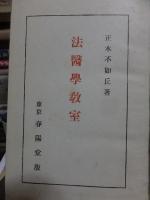 正木不如丘著
法醫學教室
東京 春陽堂版